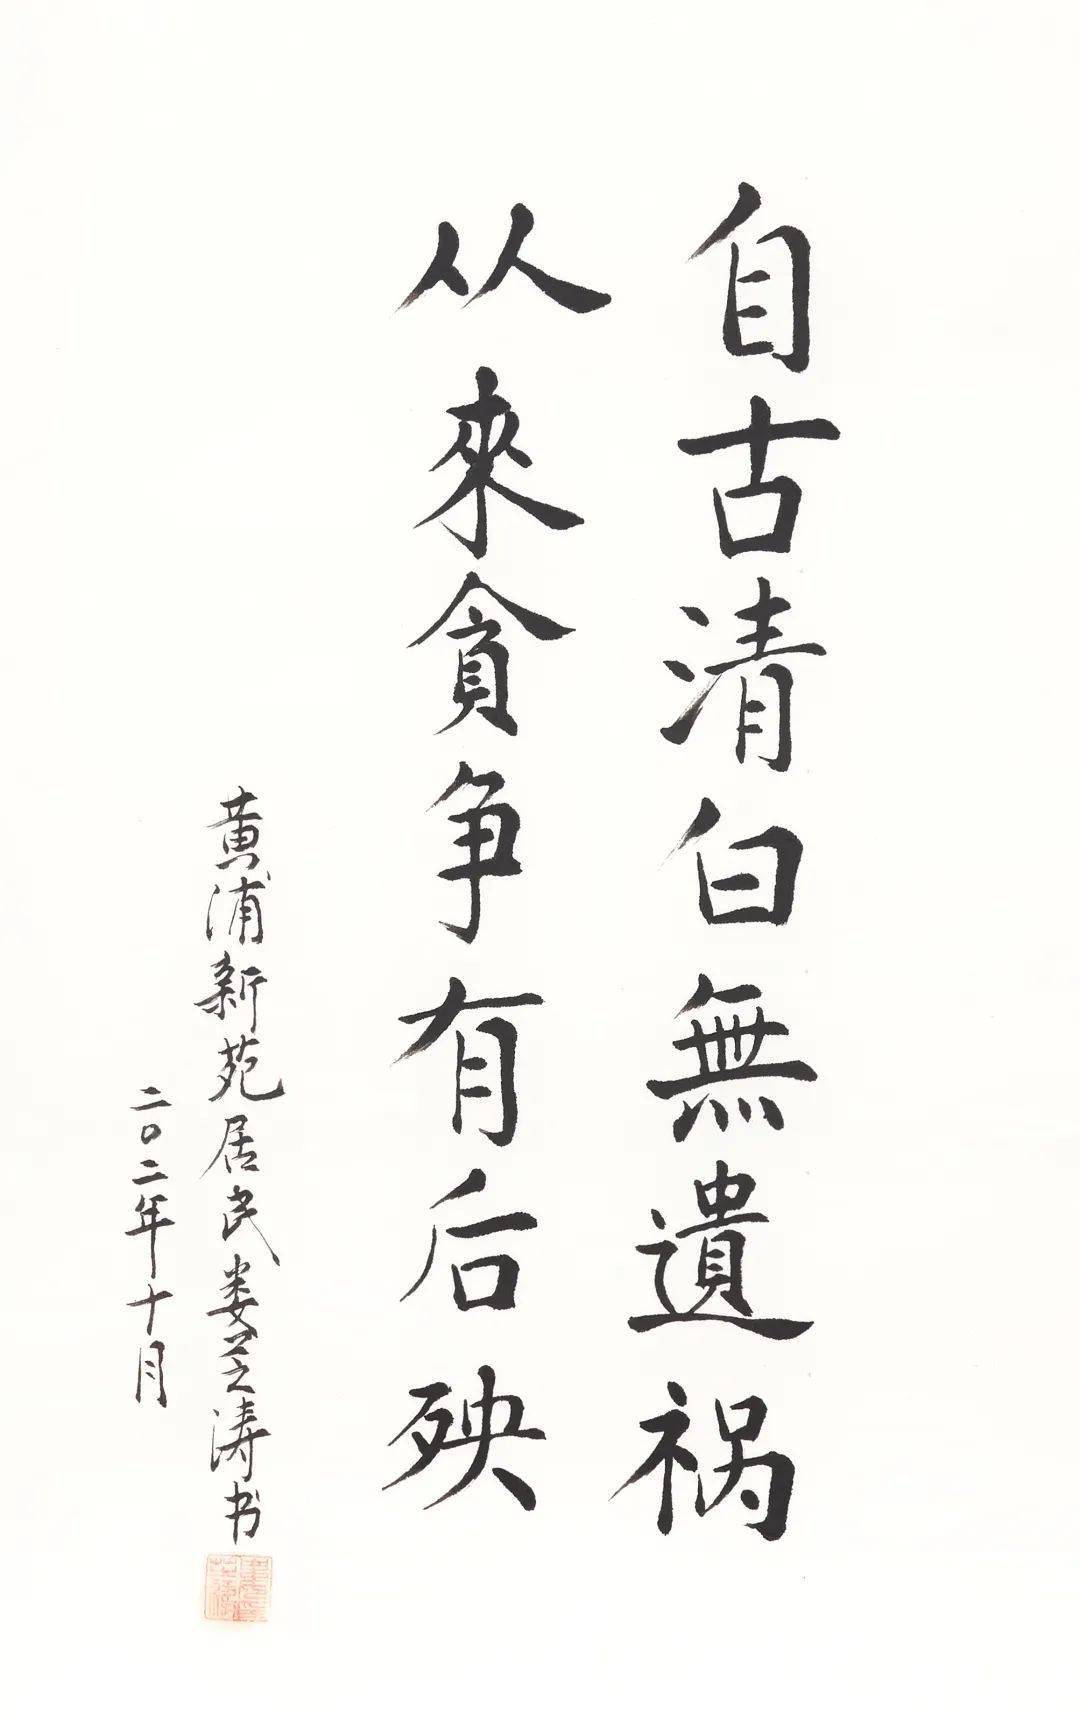 自古清白無遺祸
从來貪争有后殃
黄浦新苑居民娄芝涛书
二〇二二年十月